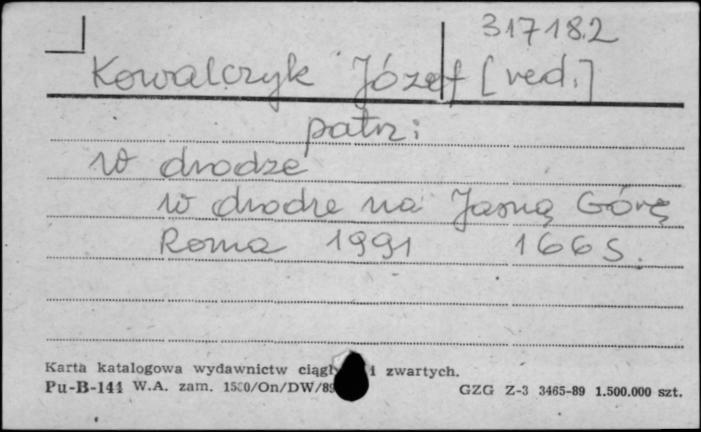 317182
Kowalczyk Józef [red.]
patrz:
W drodze
W drodze na Jasną Górę
Roma 1991 166 s.
Karta katalogowa wydawnictw i zwartych.
Pu-B-144 W.A. zam. /On/DW/89 GZG Z-3 3465-89 1.500.000 szt.